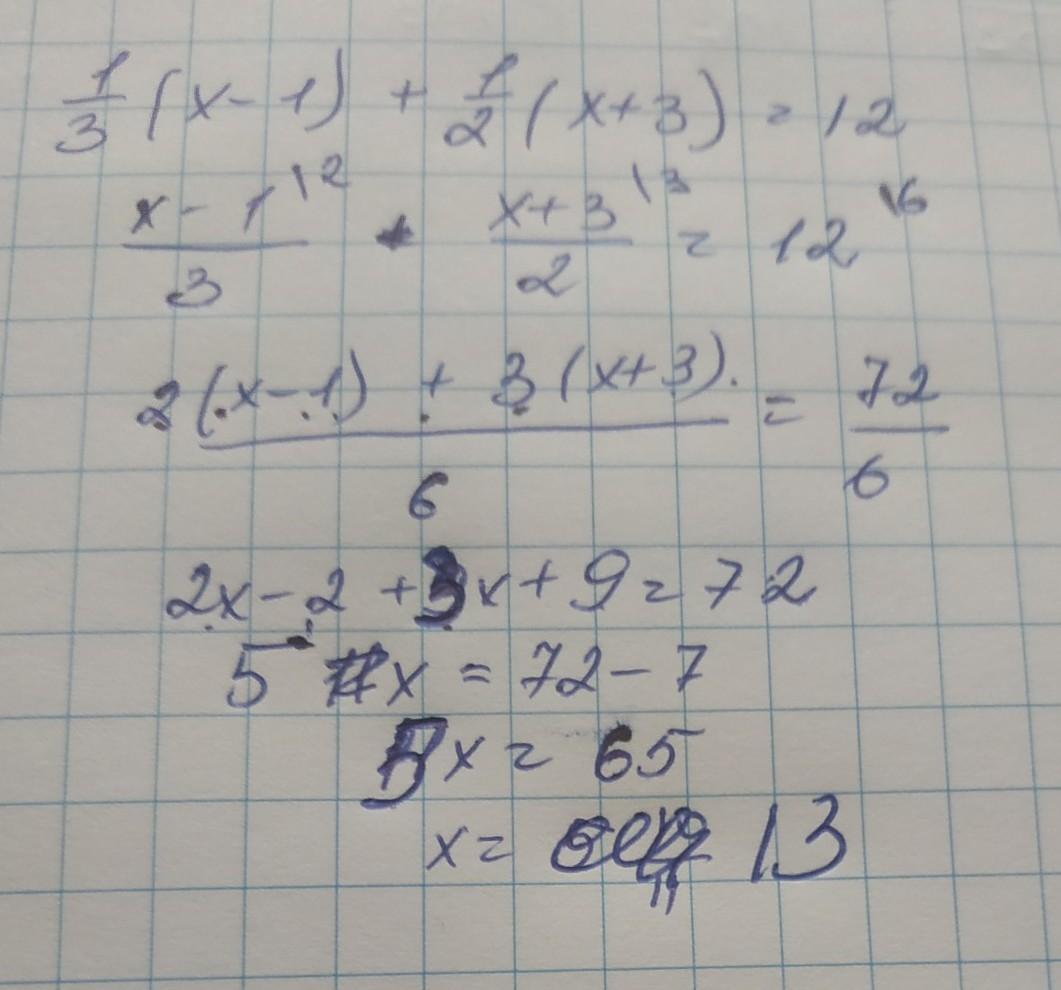 1/3 (x - 1) + 1/2 (x + 3) = 12
x - 1 \2 / 3 + x + 3 \3 / 2 = 12 \6
2(x - 1) + 3(x + 3) / 6 = 72 / 6
2x - 2 + 3x + 9 = 72
5 x = 72 - 7
5x = 65
x = 13